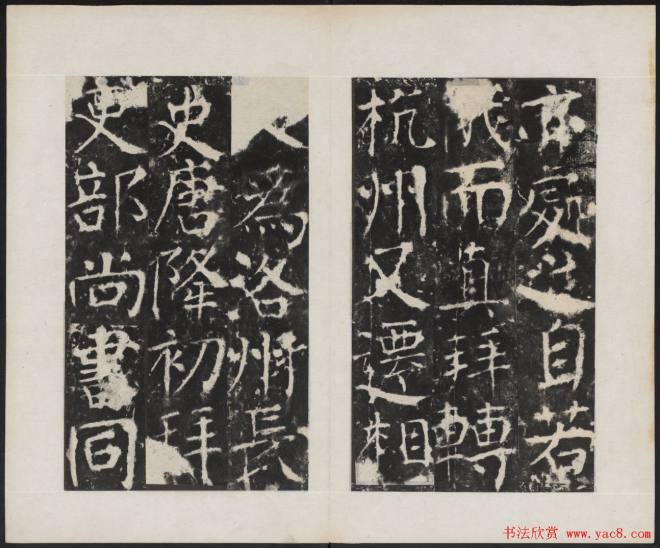 亦處之自若
而直拜轉
杭州又遷相
爲洛州長
史唐隆初拜
吏部尚書同
书法欣赏 www.yac8.com